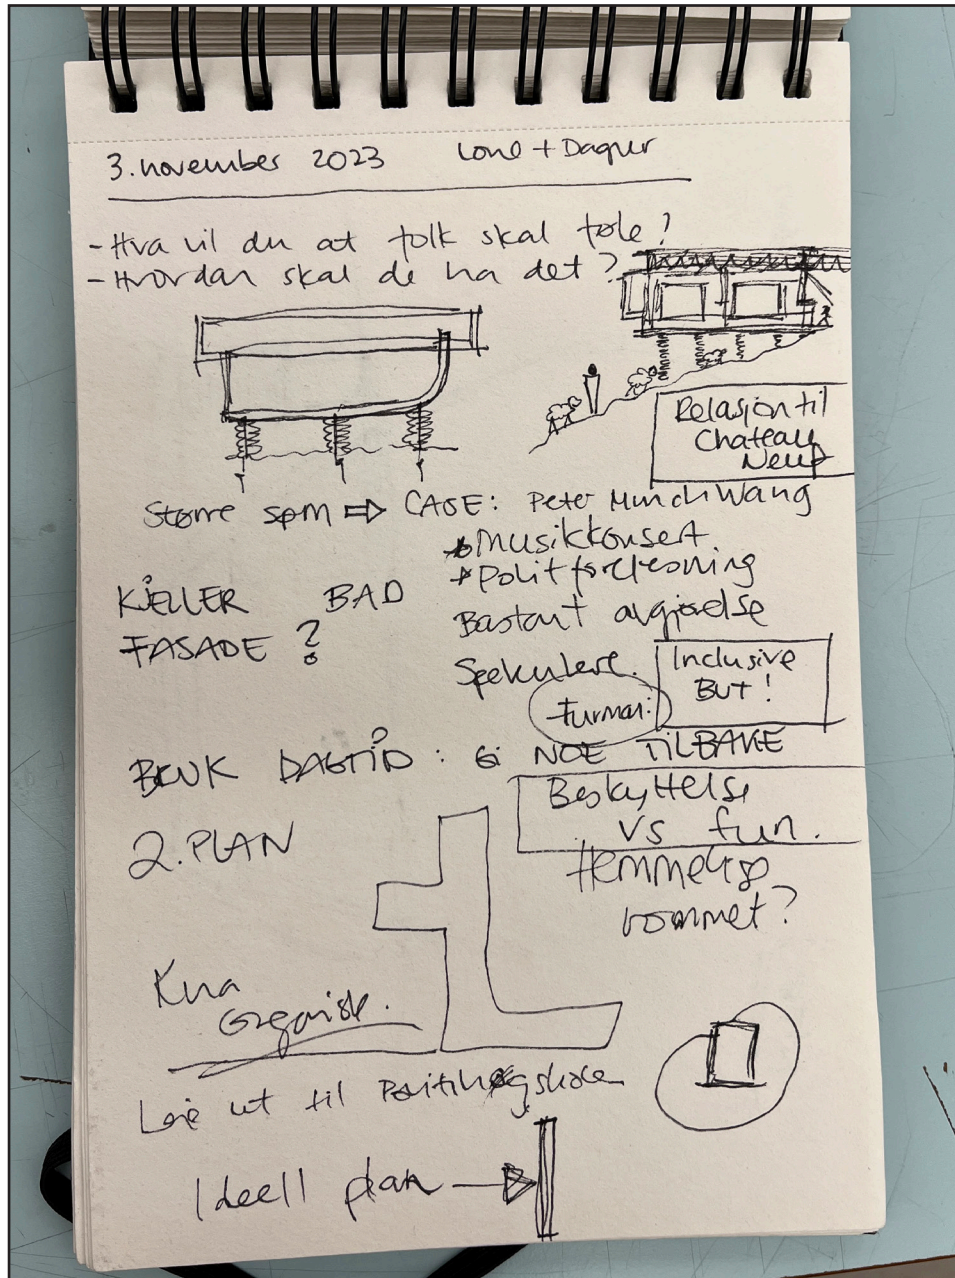 3. november 2023 Lone + Dagur
- Hva vil du at folk skal føle?
- Hvordan skal de ha det?
Relasjon til
Chateau
Neuf
Større spm ⇒ CASE: Peter Munch Wang
* Musikkonsert
* Polit forelesning
KJELLER BAD
FASADE?
Bastant avgjørelse
Spekulere.
Inclusive
But!
BRUK DAGTID: Gi NOE TILBAKE
Beskyttelse
vs fun.
2. PLAN
Hemmelige
rommet?
Kua
organisk.
Leie ut til Politihøgskolen
Ideell plan →